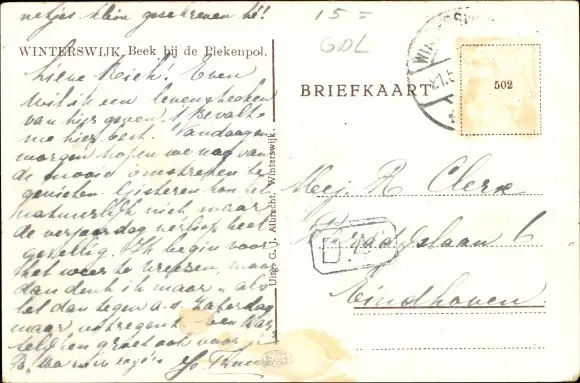 netjes klein geschreven hè!
15 =
GDL
WINTERSWIJK. Beek bij de Plekenpol.
BRIEFKAART
502
Lieve Reich! Even
wil ik een levensteeken
van hier geven. 't Bevalt
me hier best. Vandaag en
morgen hopen we nog van
de mooie omstreken te
genieten. Gisteren kon het
natuurlijk niet, maar
de verjaardag verliep heel
gezellig. Ik begin voor
het weer te vreezen, maar
dan denk ik maar "als
het dan tegen a.s. Zaterdag
maar uitregent. Een har
telijken groet ook voor je
Uitg. G. J. Albrecht, Winterswijk.
Mej. R. Clerx
6
Eindhoven